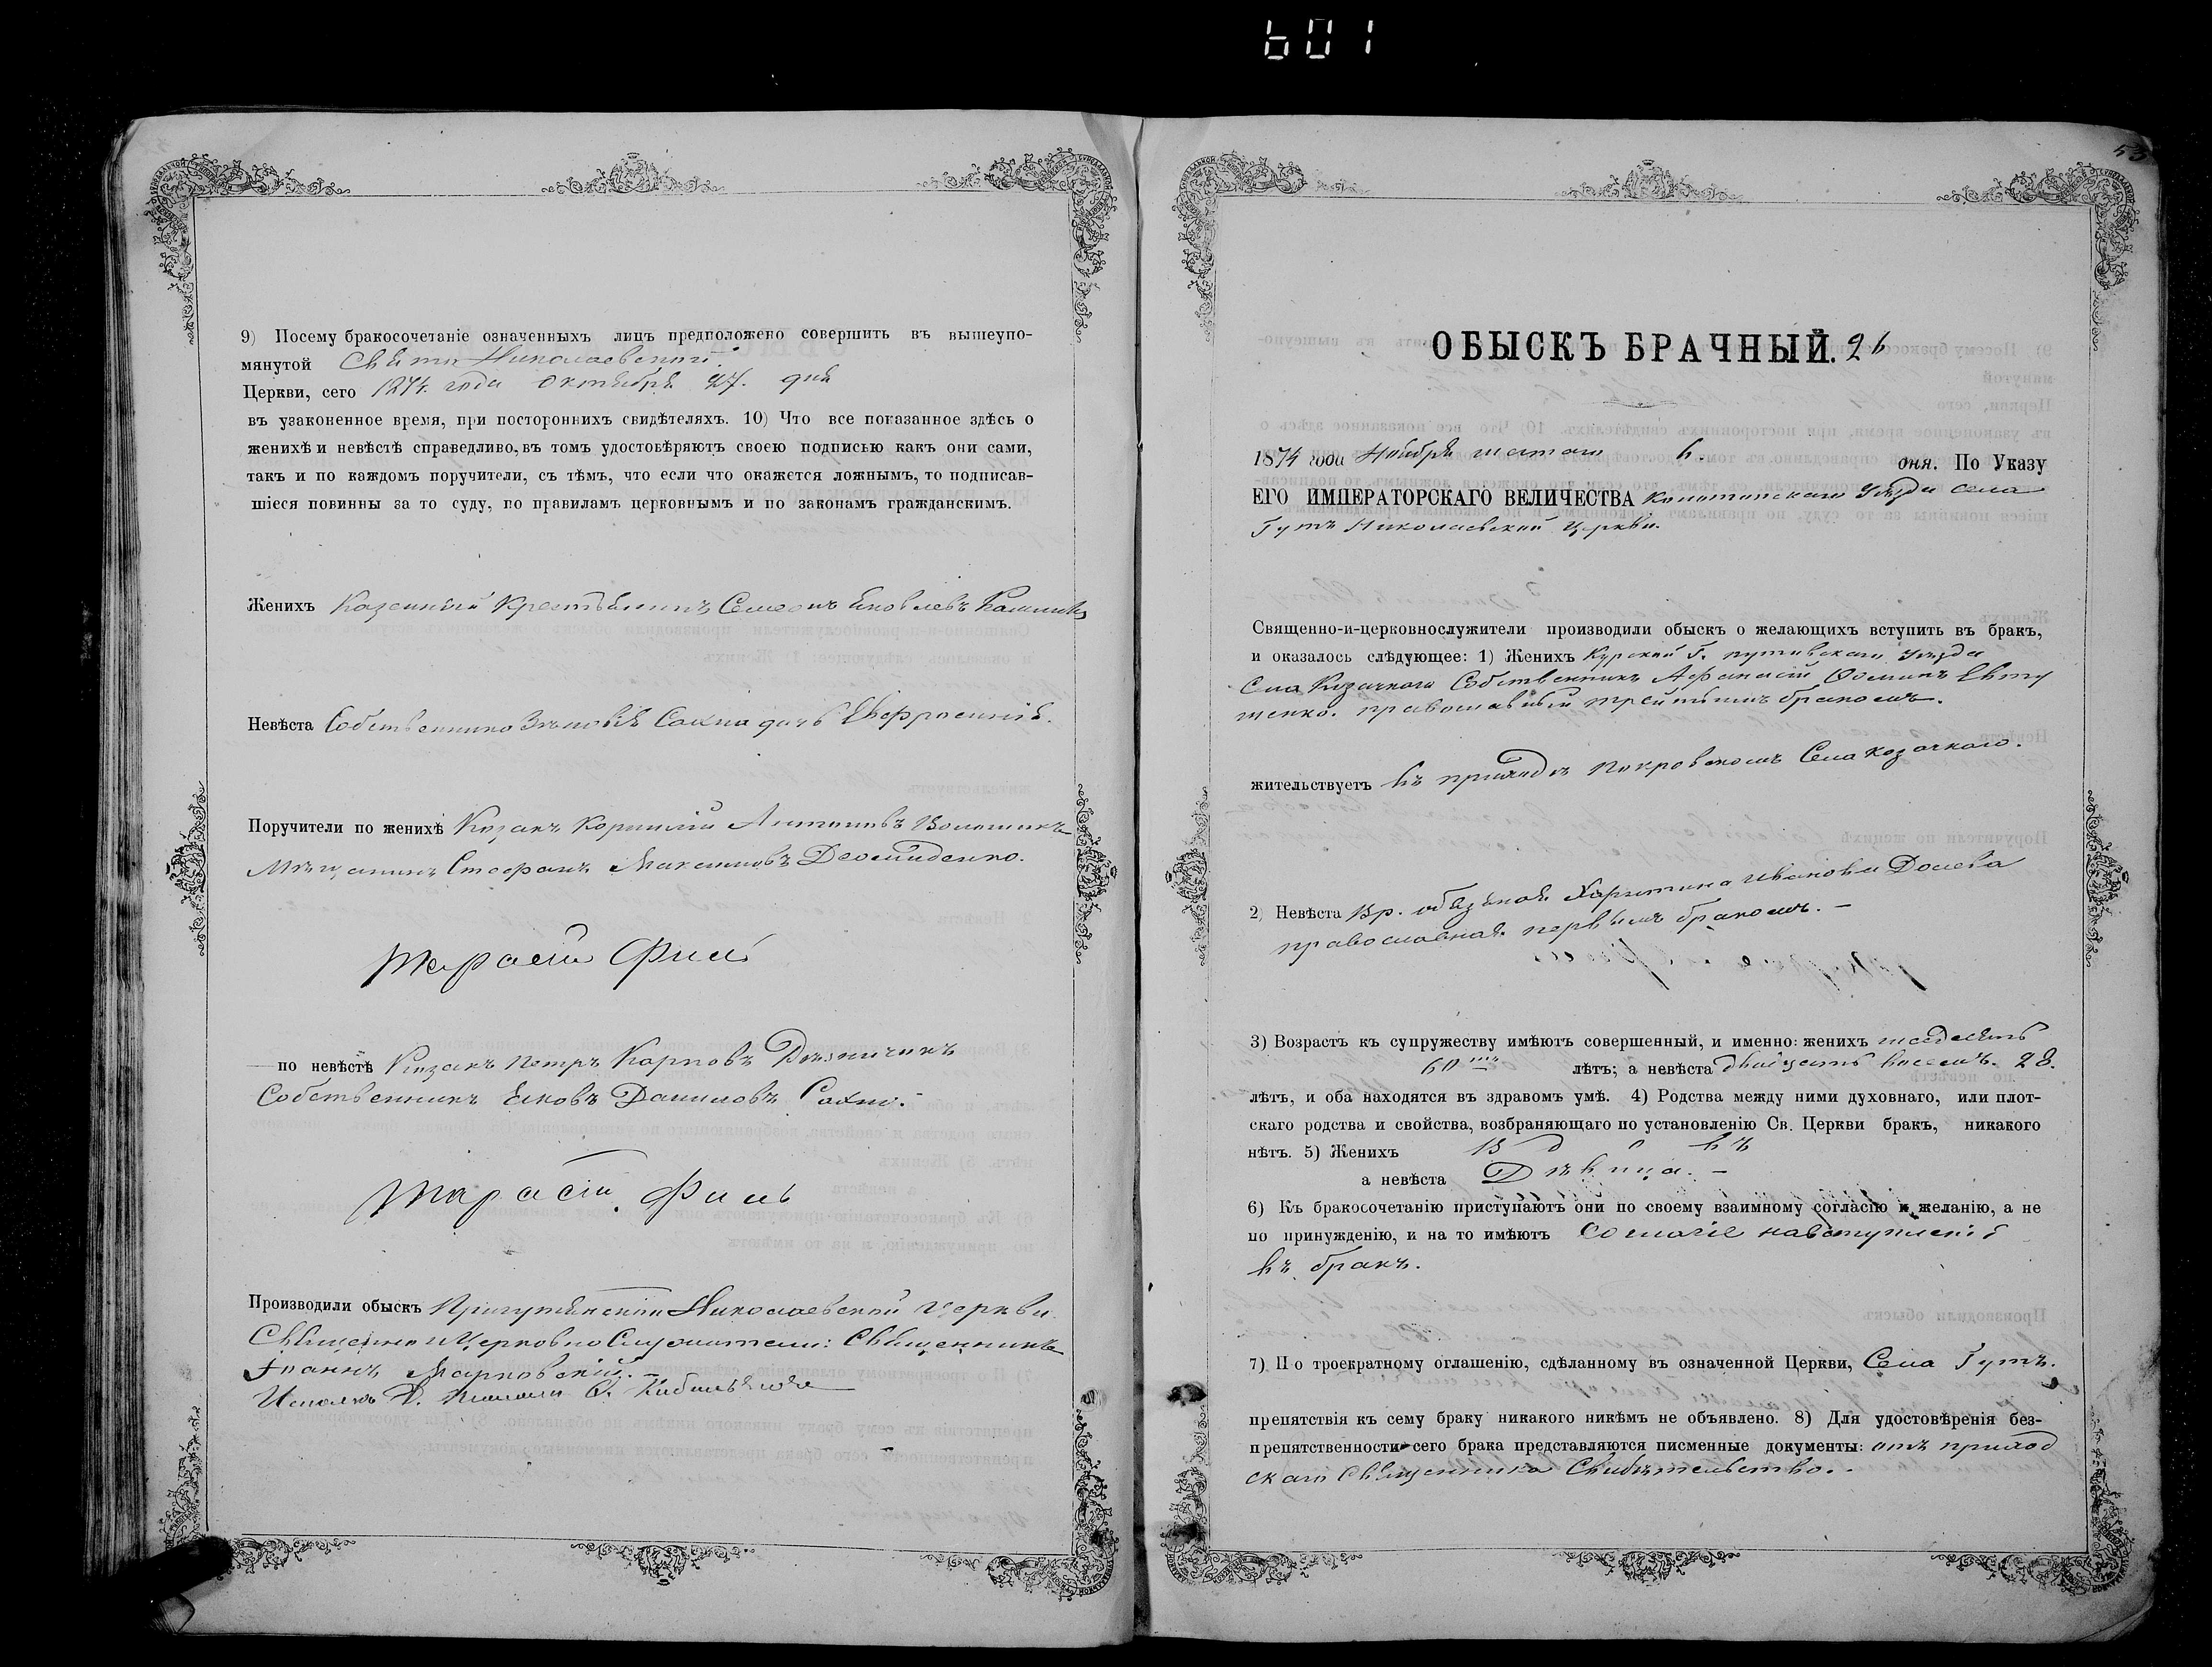 601
9) Посему бракосочетаніе означенныхъ лицъ предположено совершить въ вышеупо-
мянутой Свято Николаевской
Церкви, сего 1874 года Октября 27. дня
въ узаконенное время, при постороннихъ свидѣтеляхъ. 10) Что все показанное здѣсь о
женихѣ и невѣстѣ справедливо, въ томъ удостовѣряютъ своею подписью какъ они сами,
такъ и по каждомъ поручители, съ тѣмъ, что если что окажется ложнымъ, то подписав-
шіеся повинны за то суду, по правиламъ церковнымъ и по законамъ гражданскимъ.
Женихъ Казенный Крестьянинъ Семеонъ Яковлевъ
Невѣста Собственника Зѣновія Сахна дочь Евфросинія.
Поручители по женихѣ Козакъ Корнилій Антоновъ
Мѣщанинъ Стефанъ Максимовъ Деомиденко.
Тарасій Филь
по невѣстѣ Козакъ Петръ Карповъ
Собственникъ Яковъ Даниловъ Сахно.
Тарасій Филь
Производили обыскъ Николаевской Церкви
Священно и Церковно Служители: Священникъ
Іоаннъ Марковскій.
53
ОБЫСКЪ БРАЧНЫЙ. 26
1874 года Ноября шатаго 6. дня. По Указу
ЕГО ИМПЕРАТОРСКАГО ВЕЛИЧЕСТВА Конотопскаго Уѣзда села
Гутъ Николаевской Церкви.
Священно-и-церковнослужители производили обыскъ о желающихъ вступить въ бракъ,
и оказалось слѣдующее: 1) Женихъ Курской Г. путивскаго Уѣзда
Села Козачкого Собственникъ Афанасій Фоминъ Евту
шенко. православный третьимъ бракомъ.
жительствуетъ въ приходѣ Покровскомъ Села козачкаго.
2) Невѣста Вр. обязаная Харитина Иванова
православная первымъ бракомъ. –
3) Возрастъ къ супружеству имѣютъ совершенный, и именно: женихъ шездесять
60 лѣтъ; а невѣста двайцать восемъ. 28.
лѣтъ, и оба находятся въ здравомъ умѣ. 4) Родства между ними духовнаго, или плот-
скаго родства и свойства, возбраняющаго по установленію Св. Церкви бракъ, никакого
нѣтъ. 5) Женихъ Вдовъ
а невѣста Дѣвица. –
6) Къ бракосочетанію приступаютъ они по своему взаимному согласію и желанію, а не
по принужденію, и на то имѣютъ согласіе на вступленія
въ бракъ.
7) По троекратному оглашенію, сдѣланному въ означенной Церкви, Села Гутъ.
препятствія къ сему браку никакого никѣмъ не объявлено. 8) Для удостовѣренія без-
препятственности сего брака представляются писменные документы: отъ приход
скаго Священника Свидѣтельство.